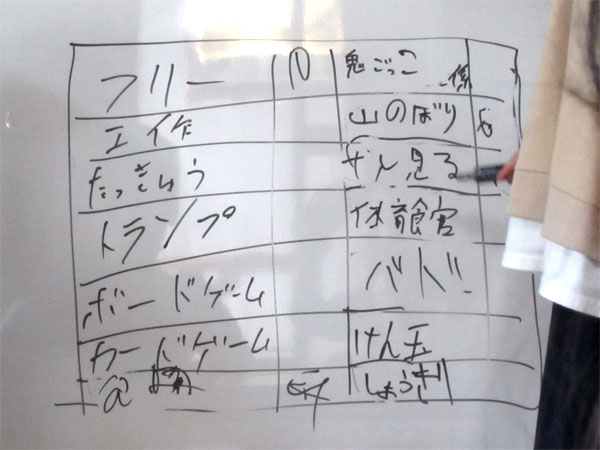 フリー
工作
たっきゅう
トランプ
ボードゲーム
カードゲーム
@
鬼ごっこ 係
山のぼり
サル見る
体育官
バド
けん玉
しょうぎ